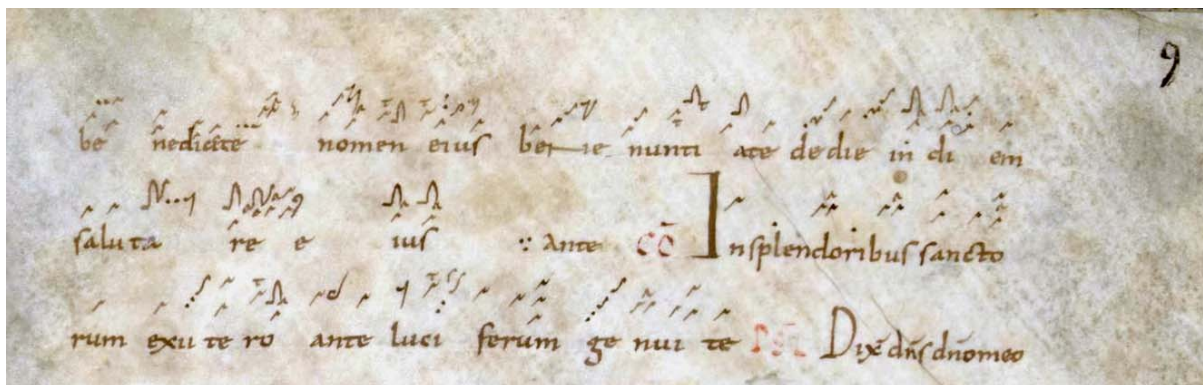 9
be nedicite nomen eius bene nunti ate de die in di em
saluta re e ius : ante cō In splendoribus sancto
rum exu te ro ante luci ferum ge nui te PS̄ Dix̄ dn̄s dn̄o meo